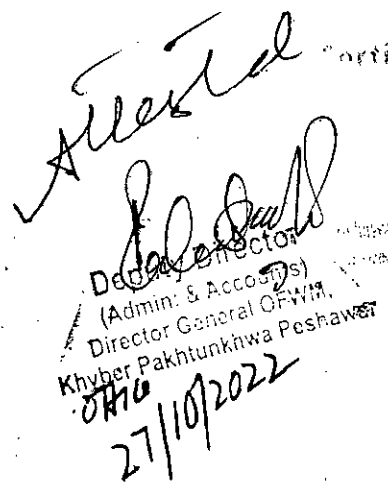 Attested
Deputy Director
(Admin: & Accounts)
Director General OFWM,
Khyber Pakhtunkhwa Peshawar
27/10/2022